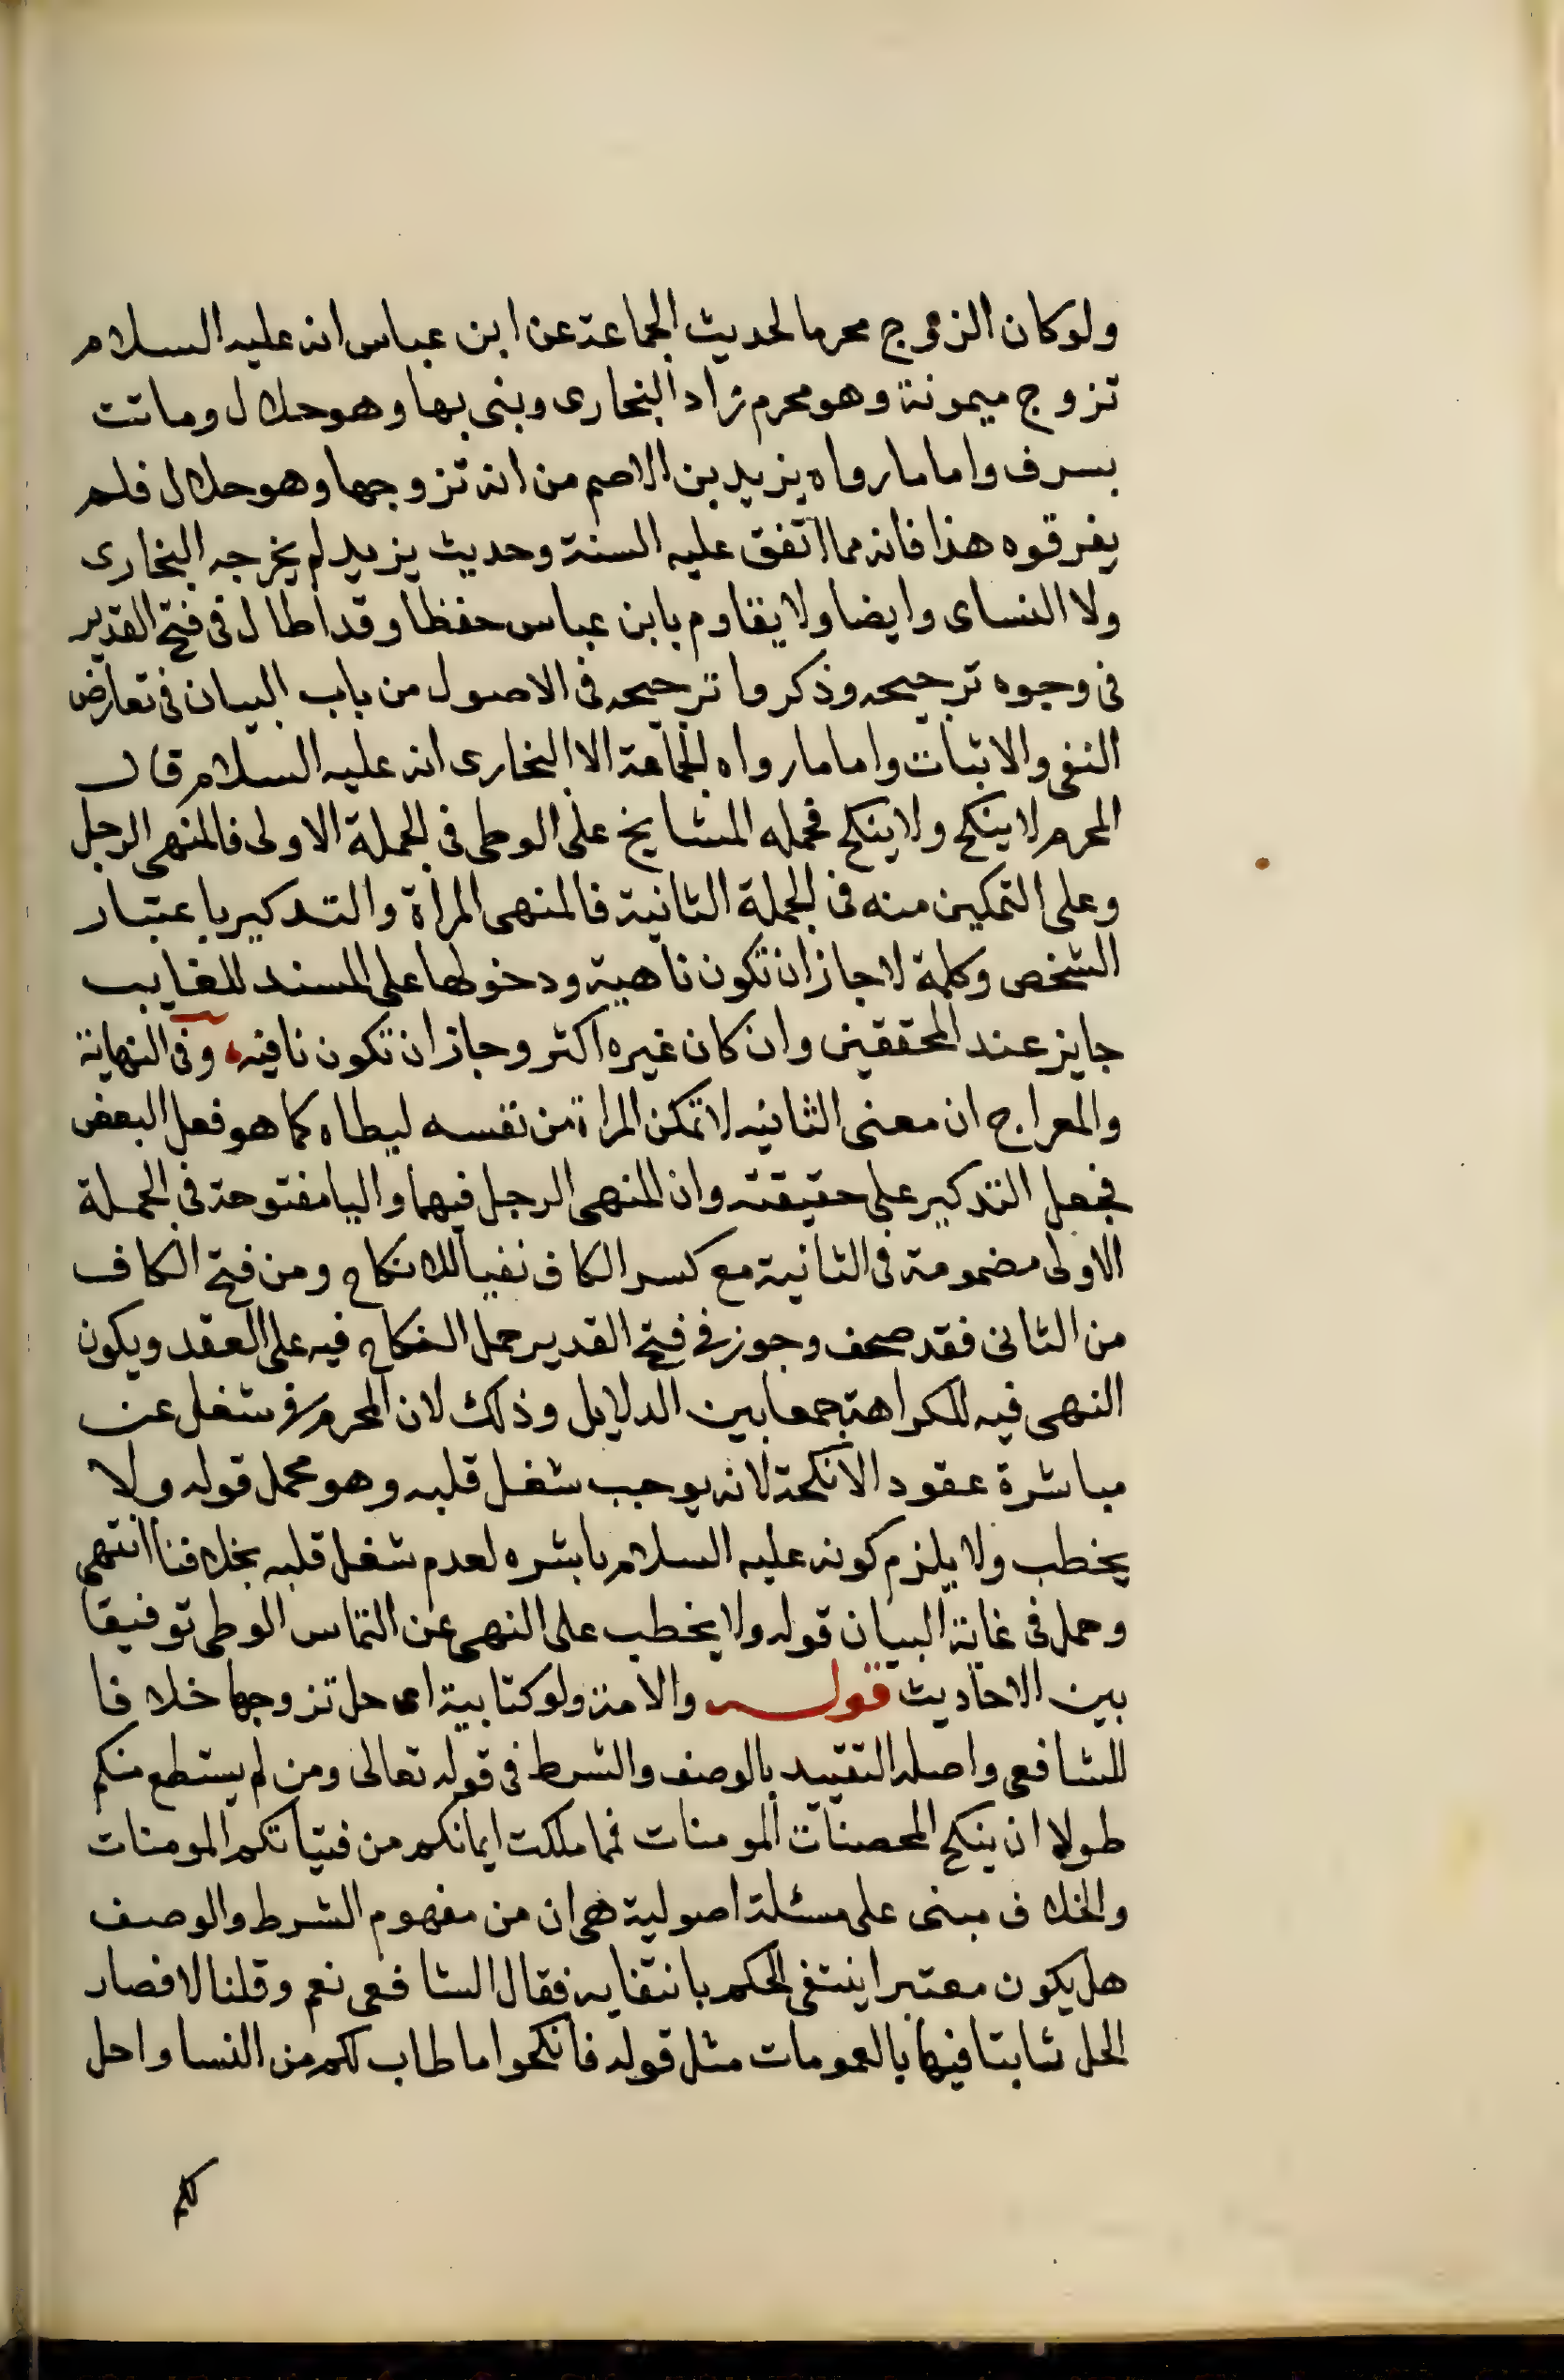 ولو كان الزوج محرما لحديث الجماعة عن ابن عباس انه عليه السلام
تزوج ميمونة وهو محرم زاد البخارى وبنى بها وهو حلال وماتت
بسرف واما ما رواه يزيد بن الاصم من انه تزوجها وهو حلال فلم
يفرقوه هذا فانه مما اتفق عليه الستة وحديث يزيد لم يخرجه البخارى
ولا النساى وايضا ولا يقاوم بابن عباس حفظا وقد اطال فى فتح القدير
فى وجوه ترجيحه وذكروا ترجيحه فى الاصول من باب البيان فى تعارض
النفى والاثبات واما ما رواه الجماعة الا البخارى انه عليه السلام قال
المحرم لا ينكح ولا ينكح فحمله المشايخ على الوطى فى الجملة الاولى فالمنهى الرجل
وعلى التمكين منه فى الجملة الثانية فالمنهى المراة والتدكير باعتبار
الشخص وكلمة لا جاز ان تكون ناهية ودخولها على المسند للغايب
جايز عند المحققين وان كان غيره اكثر وجاز ان تكون نافيه وفى النهاية
والمعراج ان معنى الثانيه لا تمكن المراة من نفسه ليطاه كما هو فعل البعض
فجعل التدكير على حقيقته وان المنهى الرجل فيهما واليا مفتوحة فى الجملة
الاولى مضمومة فى الثانية مع كسر الكاف نفيا للانكاح ومن فتح الكاف
من الثانى فقد صحف وجوز فى فتح القدير حمل النكاح فيه على العقد ويكون
النهى فيه للكراهة جمعا بين الدلايل وذلك لان المحرم فى شغل عن
مباشرة عقود الانكحة لانه يوجب شغل قلبه وهو محمل قوله ولا
يخطب ولا يلزم كونه عليه السلام باشره لعدم شغل قلبه بخلافنا انتهى
وحمل فى غاية البيان قوله ولا يخطب على النهى عن التماس الوطى توفيقا
بين الاحاديث قوله والامة ولو كتابية اى حل تزوجها خلافا
للشافعى واصله التقييد بالوصف والشرط فى قوله تعالى ومن لم يستطع منكم
طولا ان ينكح المحصنات المومنات فما ملكت ايمانكم من فتياتكم المومنات
والخلاف مبنى على مسئلة اصولية هى ان من مفهوم الشرط والوصف
هل يكون معتبرا ينتفى الحكم بانتفايه فقال الشافعى نعم وقلنا لا فصار
الحل ثابتا فيها بالعمومات مثل قوله فانكحوا ما طاب لكم من النسا واحل
لكم